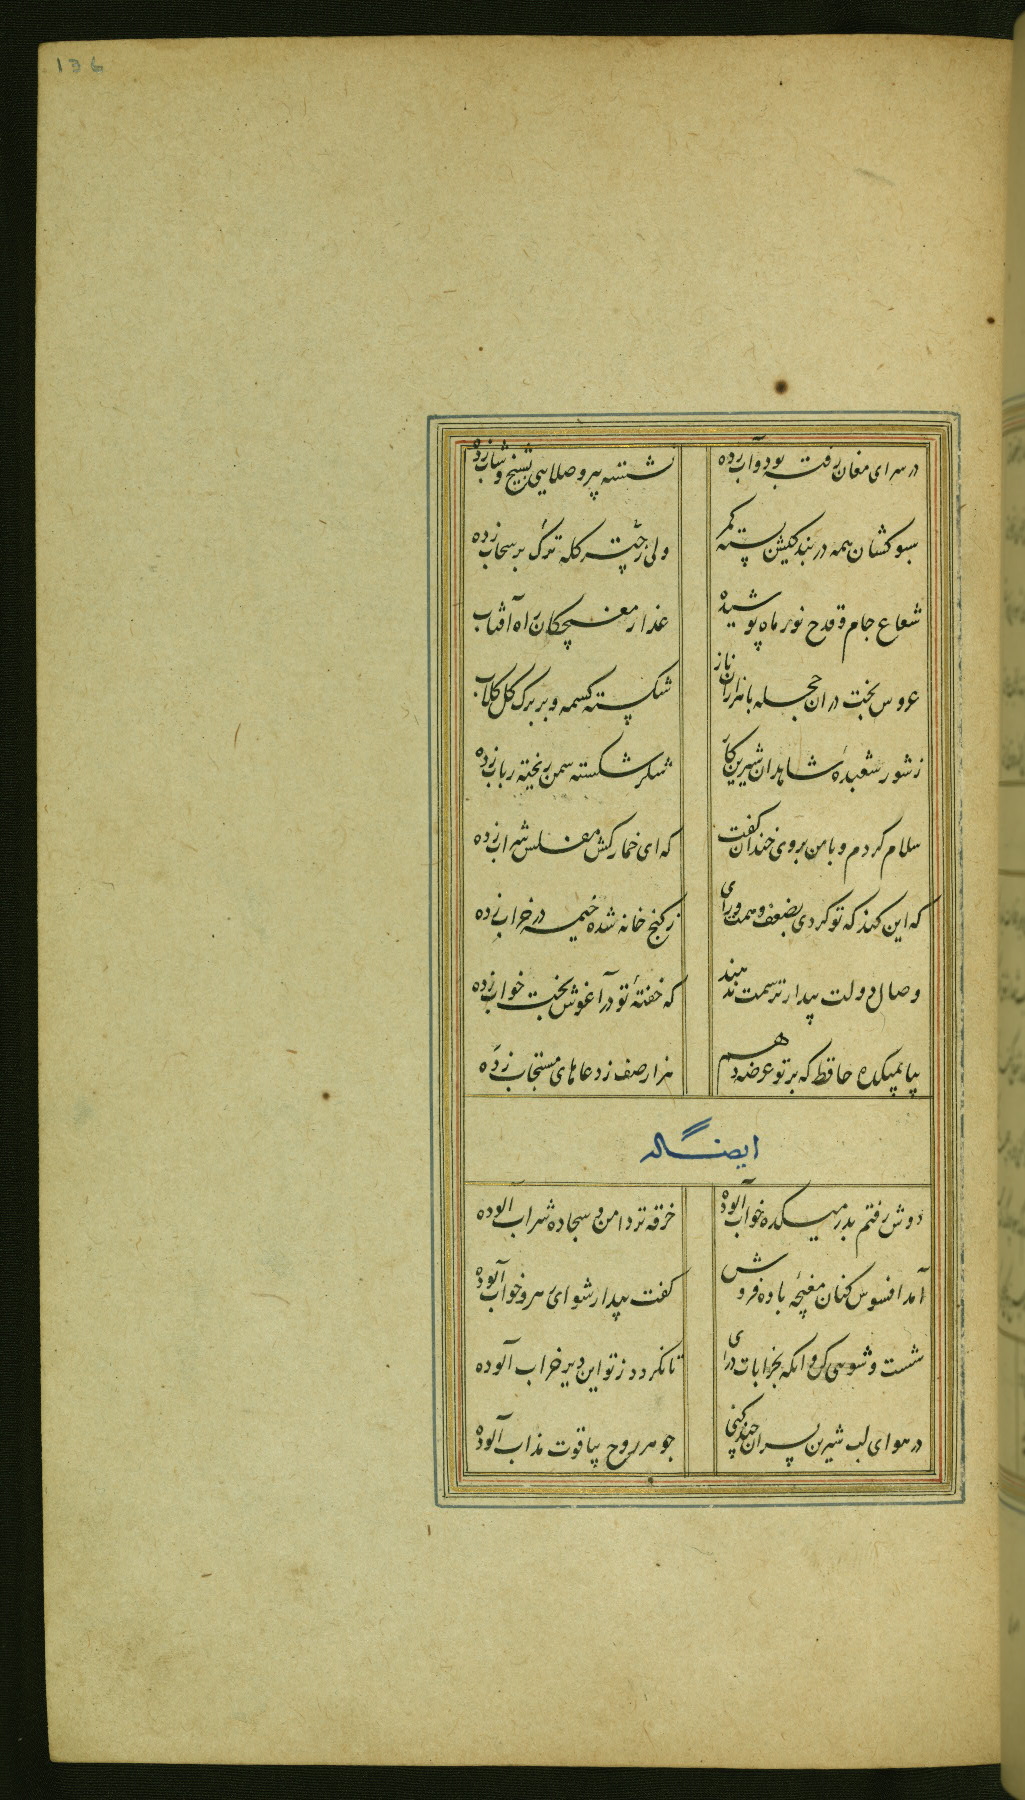 136
در سرای مغان رفته بود و آب زده
نشسته پیر و صلایی بشیخ و شاب زده
سبو کشان همه در بندگیش بسته کمر
ولی ز چتر کله ترک بر سحاب زده
شعاع جام و قدح نور ماه پوشیده
عذار مغبچگان راه آفتاب زده
عروس بخت در ان حجله با هزاران ناز
شکسته کسمه و بر برک کل کلاب زده
ز شور شعبدهٔ شاهدان شیرین کار
شکر شکسته سمن ریخته رباب زده
سلام کردم و با من بروی خندان کفت
که ای خمارکش مفلس شراب زده
که این کند که تو کردی بضعف و همت و رای
ز کنج خانه شده خیمه در خراب زده
وصال دولت بیدار ترسمت ندهند
که خفتهٔ تو در آغوش بخت خواب زده
بیا بمیکده حافظ که بر تو عرضه دهم
هزار صف ز دعاهای مستجاب زده
ایضاً له
دوش رفتم بدر میکده خواب آلوده
خرقه تر دامن و سجاده شراب آلوده
آمد افسوس کنان مغبچهٔ باده فروش
کفت بیدار شو ای رهرو خواب آلوده
شست و شویی کن و انکه بخرابات درای
تا نکردد ز تو این دیر خراب آلوده
در هوای لب شیرین پسران چند کنی
جوهر روح بیاقوت مذاب آلوده